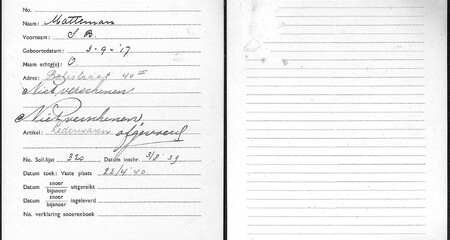 No.
Naam: Matteman
Voornaam: S B.
Geboortedatum: 3-9-'17
Naam echtg(e): O
Adres: 40 II
Niet verschenen.
Niet verschenen,
Artikel: Lederwaren afgevoerd
No. Soll.lijst 320 Datum inschr. 3/8 '39
Datum toek: Vaste plaats 22/4 '40
Datum snoer uitgereikt
bijsnoer
Datum snoer ingeleverd
bijsnoer
No. verklaring snoerenboek